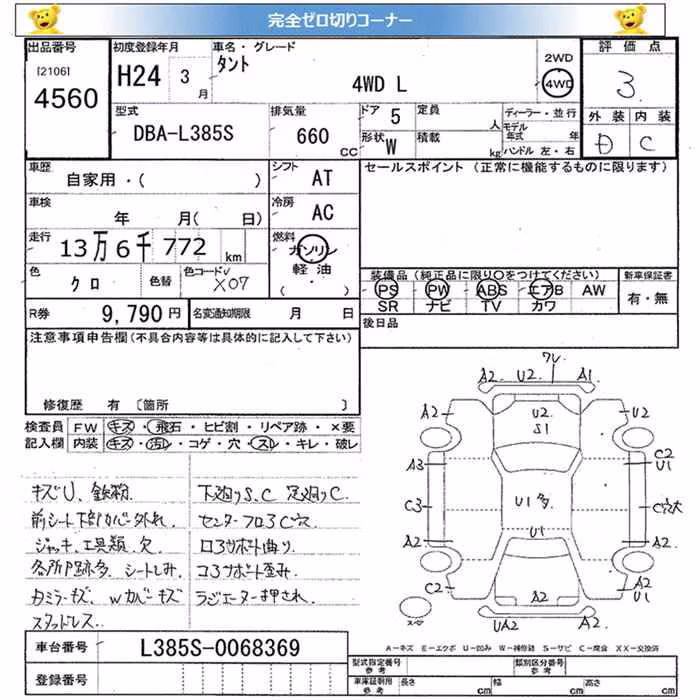 完全ゼロ切りコーナー
出品番号
[2106]
4560
初度登録年月
H24 3 月
車名・グレード
タント
4WD L
2WD
4WD
評価点
3
外装 内装
D C
型式
DBA-L385S
排気量
660 CC
ドア 5
形状 W
定員 人
積載 kg
ディーラー・並行
モデル年式 年
ハンドル 左・右
車歴
自家用・( )
シフト AT
車検
年 月( 日)
冷房 AC
走行
13万6千772 km
燃料
ガソリン
軽油
( ・ )
色
クロ 色替
色コード
X07
R券 9,790円
名変通知期限 月 日
セールスポイント (正常に機能するものに限ります)
装備品(純正品に限り○をつけてください)
PS PW ABS エアB AW
SR ナビ TV カワ
新車保証書
有・無
後日品
注意事項申告欄(不具合内容等は具体的に記入して下さい)
修復歴 有 〔箇所 〕
検査員 FW キズ・飛石・ヒビ割・リペア跡・×要
記入欄 内装 キズ・汚レ・コゲ・穴・スレ・キレ・破レ
キズU、鉄粉
前シート下部カバー外れ
ジャッキ、工具類欠
各所P跡多、シートしみ
カミラーキズ、Wカバーキズ
スタッドレス
下廻りS、C 足廻りC
センターフロアC穴
ロアサポート曲り
コアサポート歪み
ラジエーター押され
ワレ
A2 U2 A1
A2 U2 U2
S1
A3 C2
U1
C3 U1多 C穴大
A2 U1 A2
C2 A2 A2
U1
UA2 A2
A-キズ E-エクボ U-凹み W-補修跡 S-サビ C-腐食 XX-交換済
車台番号 L385S-0068369
登録番号
型式指定番号
参考
類別区分番号
参考
車庫証明用
参考
長さ cm 幅 cm 高さ cm